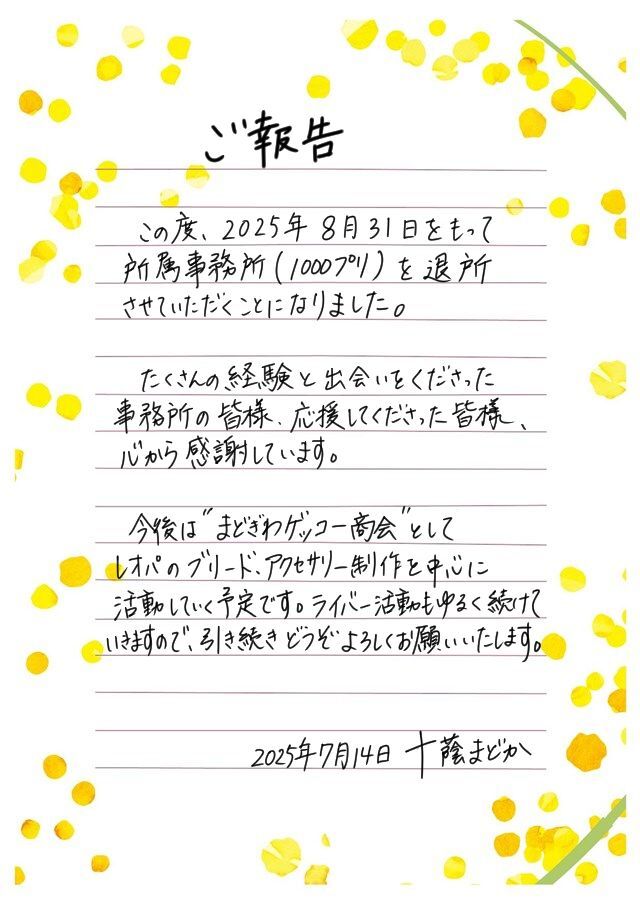 ご報告
この度、2025年8月31日をもって
所属事務所(1000プリ)を退所
させていただくことになりました。
たくさんの経験と出会いをくださった
事務所の皆様、応援してくださった皆様、
心から感謝しています。
今後は"まどぎわゲッコー商会"として
レオパのブリード、アクセサリー制作を中心に
活動していく予定です。ライバー活動もゆるく続けて
いきますので、引き続きどうぞよろしくお願いいたします。
2025年7月14日 十蔭まどか